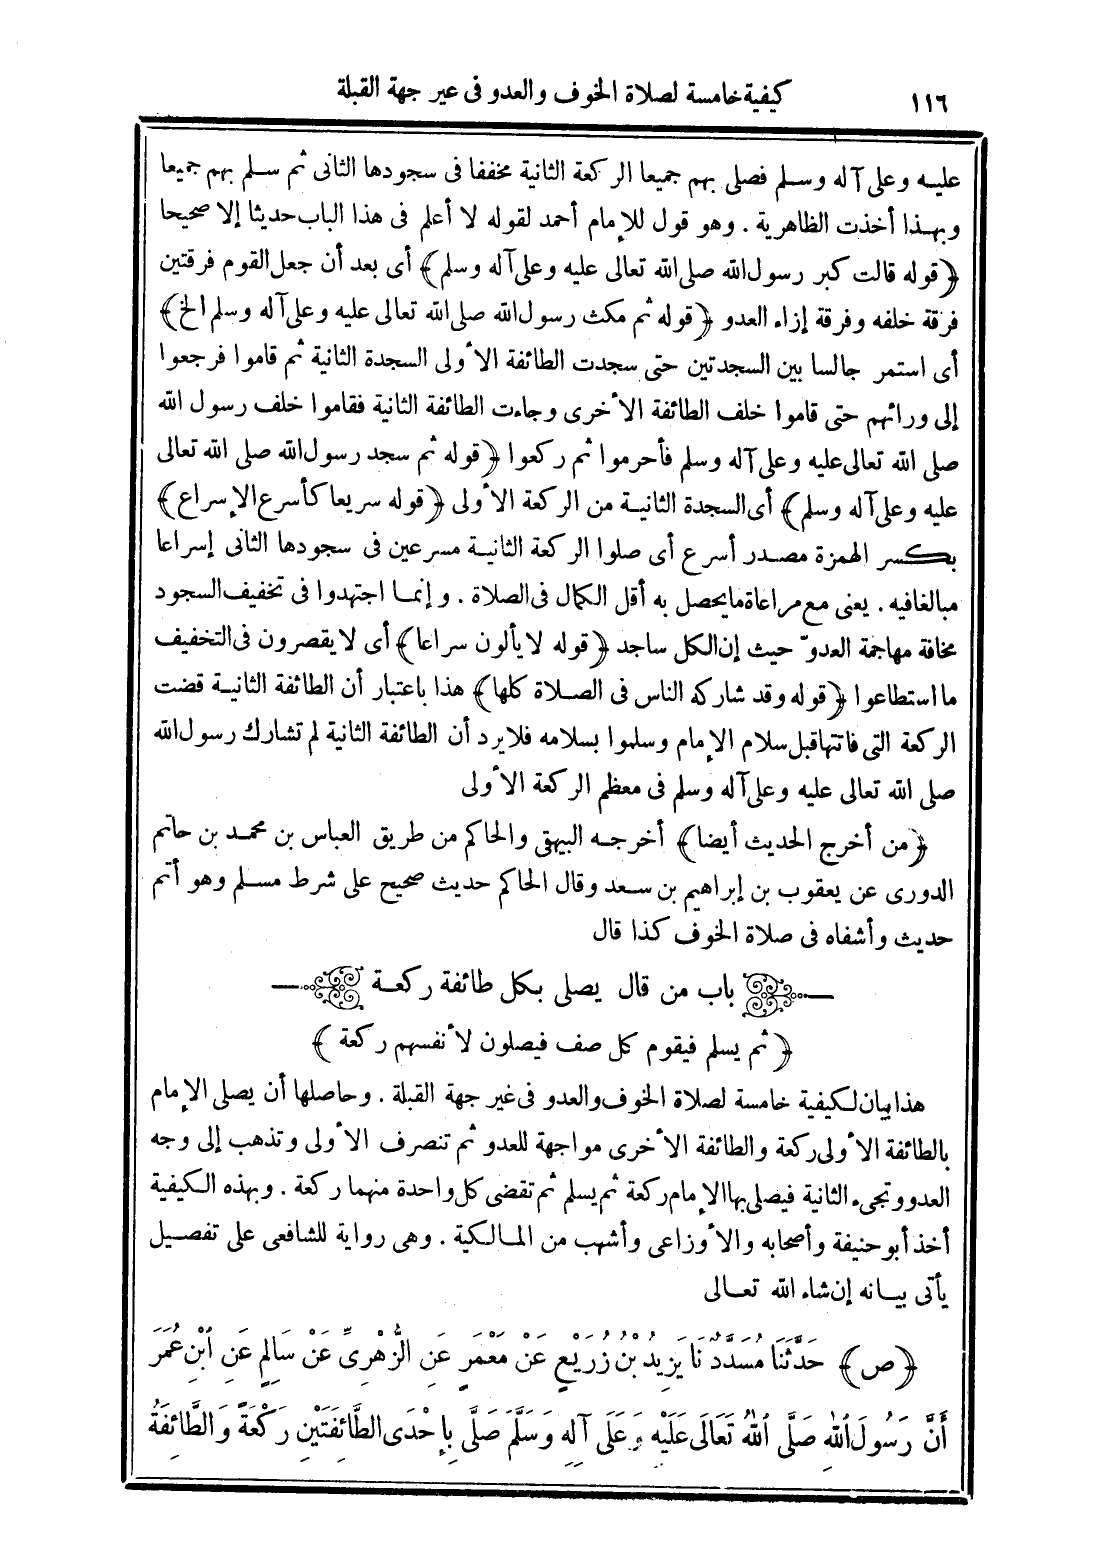 ١١٦
كيفية خامسة لصلاة الخوف والعدو فى عير جهة القبلة
عليه وعلى آله وسلم فصلى بهم جميعا الركعة الثانية مخففا فى سجودها الثانى ثم سلم بهم جميعا
وبهذا أخذت الظاهرية . وهو قول للإمام أحمد لقوله لا أعلم فى هذا الباب حديثا إلا صحيحا
﴿قوله قالت كبر رسول الله صلى الله تعالى عليه وعلى آله وسلم﴾ أى بعد أن جعل القوم فرقتين
فرقة خلفه وفرقة إزاء العدو ﴿قوله ثم مكث رسول الله صلى الله تعالى عليه وعلى آله وسلم الخ﴾
أى استمر جالسا بين السجدتين حتى سجدت الطائفة الأولى السجدة الثانية ثم قاموا فرجعوا
إلى ورائهم حتى قاموا خلف الطائفة الأخرى وجاءت الطائفة الثانية فقاموا خلف رسول الله
صلى الله تعالى عليه وعلى آله وسلم فأحرموا ثم ركعوا ﴿قوله ثم سجد رسول الله صلى الله تعالى
عليه وعلى آله وسلم﴾ أى السجدة الثانية من الركعة الأولى ﴿قوله سريعا كأسرع الإسراع﴾
بكسر الهمزة مصدر أسرع أى صلوا الركعة الثانية مسرعين فى سجودها الثانى إسراعا
مبالغا فيه . يعنى مع مراعاة ما يحصل به أقل الكمال فى الصلاة . وإنما اجتهدوا فى تخفيف السجود
مخافة مهاجمة العدوّ حيث إن الكل ساجد ﴿قوله لا يألون سراعا﴾ أى لا يقصرون فى التخفيف
ما استطاعوا ﴿قوله وقد شاركه الناس فى الصلاة كلها﴾ هذا باعتبار أن الطائفة الثانية قضت
الركعة التى فاتتها قبل سلام الإمام وسلموا بسلامه فلا يرد أن الطائفة الثانية لم تشارك رسول الله
صلى الله تعالى عليه وعلى آله وسلم فى معظم الركعة الأولى
﴿من أخرج الحديث أيضا﴾ أخرجه البيهقى والحاكم من طريق العباس بن محمد بن حاتم
الدورى عن يعقوب بن إبراهيم بن سعد وقال الحاكم حديث صحيح على شرط مسلم وهو أتم
حديث وأشفاه فى صلاة الخوف كذا قال
باب من قال يصلى بكل طائفة ركعة
﴿ثم يسلم فيقوم كل صف فيصلون لأنفسهم ركعة﴾
هذا بيان لكيفية خامسة لصلاة الخوف والعدو فى غير جهة القبلة . وحاصلها أن يصلى الإمام
بالطائفة الأولى ركعة والطائفة الأخرى مواجهة للعدو ثم تنصرف الأولى وتذهب إلى وجه
العدو وتجىء الثانية فيصلى بها الإمام ركعة ثم يسلم ثم تقضى كل واحدة منهما ركعة . وبهذه الكيفية
أخذ أبو حنيفة وأصحابه والأوزاعى وأشهب من المالكية . وهى رواية للشافعى على تفصيل
يأتى بيانه إن شاء الله تعالى
﴿ص﴾ حَدَّثَنَا مُسَدَّدٌ نَا يَزِيدُ بْنُ زُرَيْعٍ عَنْ مَعْمَرٍ عَنِ الزُّهْرِىِّ عَنْ سَالِمٍ عَنِ ابْنِ عُمَرَ
أَنَّ رَسُولَ اللهِ صَلَّى اللهُ تَعَالَى عَلَيْهِ وَعَلَى آلِهِ وَسَلَّمَ صَلَّى بِإِحْدَى الطَّائِفَتَيْنِ رَكْعَةً وَالطَّائِفَةُ